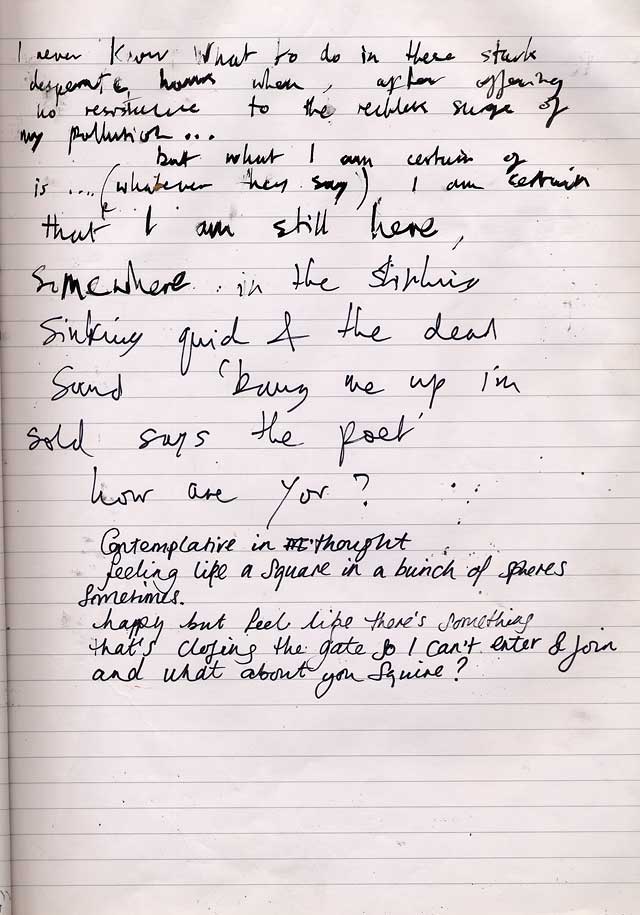 I never know what to do in these stark
desperate, hours when, after offering
no resistance to the reckless surge of
my pollution...
but what I am certain of
is .... (whatever they say) I am certain
that I am still here,
somewhere in the stinking
sinking quid & the dead
Sand 'bang me up i'm
sold says the poet'
how are you?
Contemplative in thought
feeling like a square in a bunch of spheres
sometimes.
happy but feel like there's something
that's closing the gate so I can't enter & join
and what about you Squire?